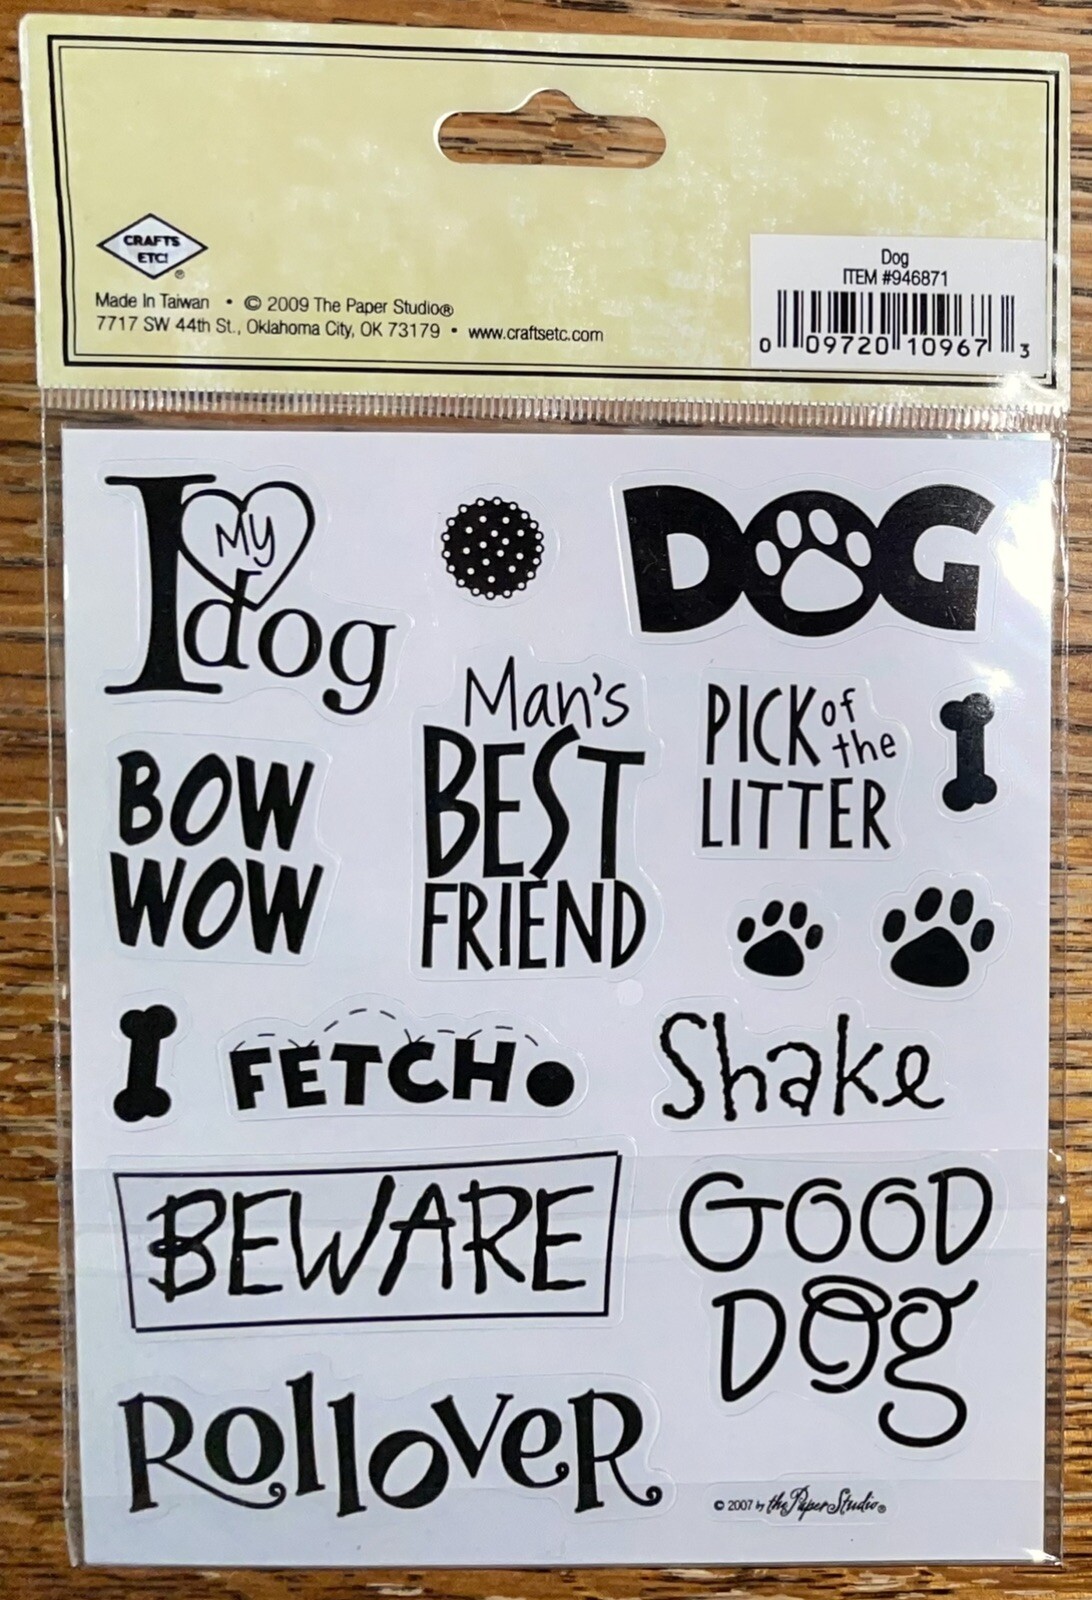 CRAFTS
ETC!®
Made In Taiwan • © 2009 The Paper Studio®
7717 SW 44th St., Oklahoma City, OK 73179 • www.craftsetc.com
Dog
ITEM #946871
0 09720 10967 3
I My
dog
DOG
Man's
BEST
FRIEND
PICK of
the
LITTER
BOW
WOW
FETCH
Shake
BEWARE
GOOD
DOg
RolloveR
© 2007 by the Paper Studio®